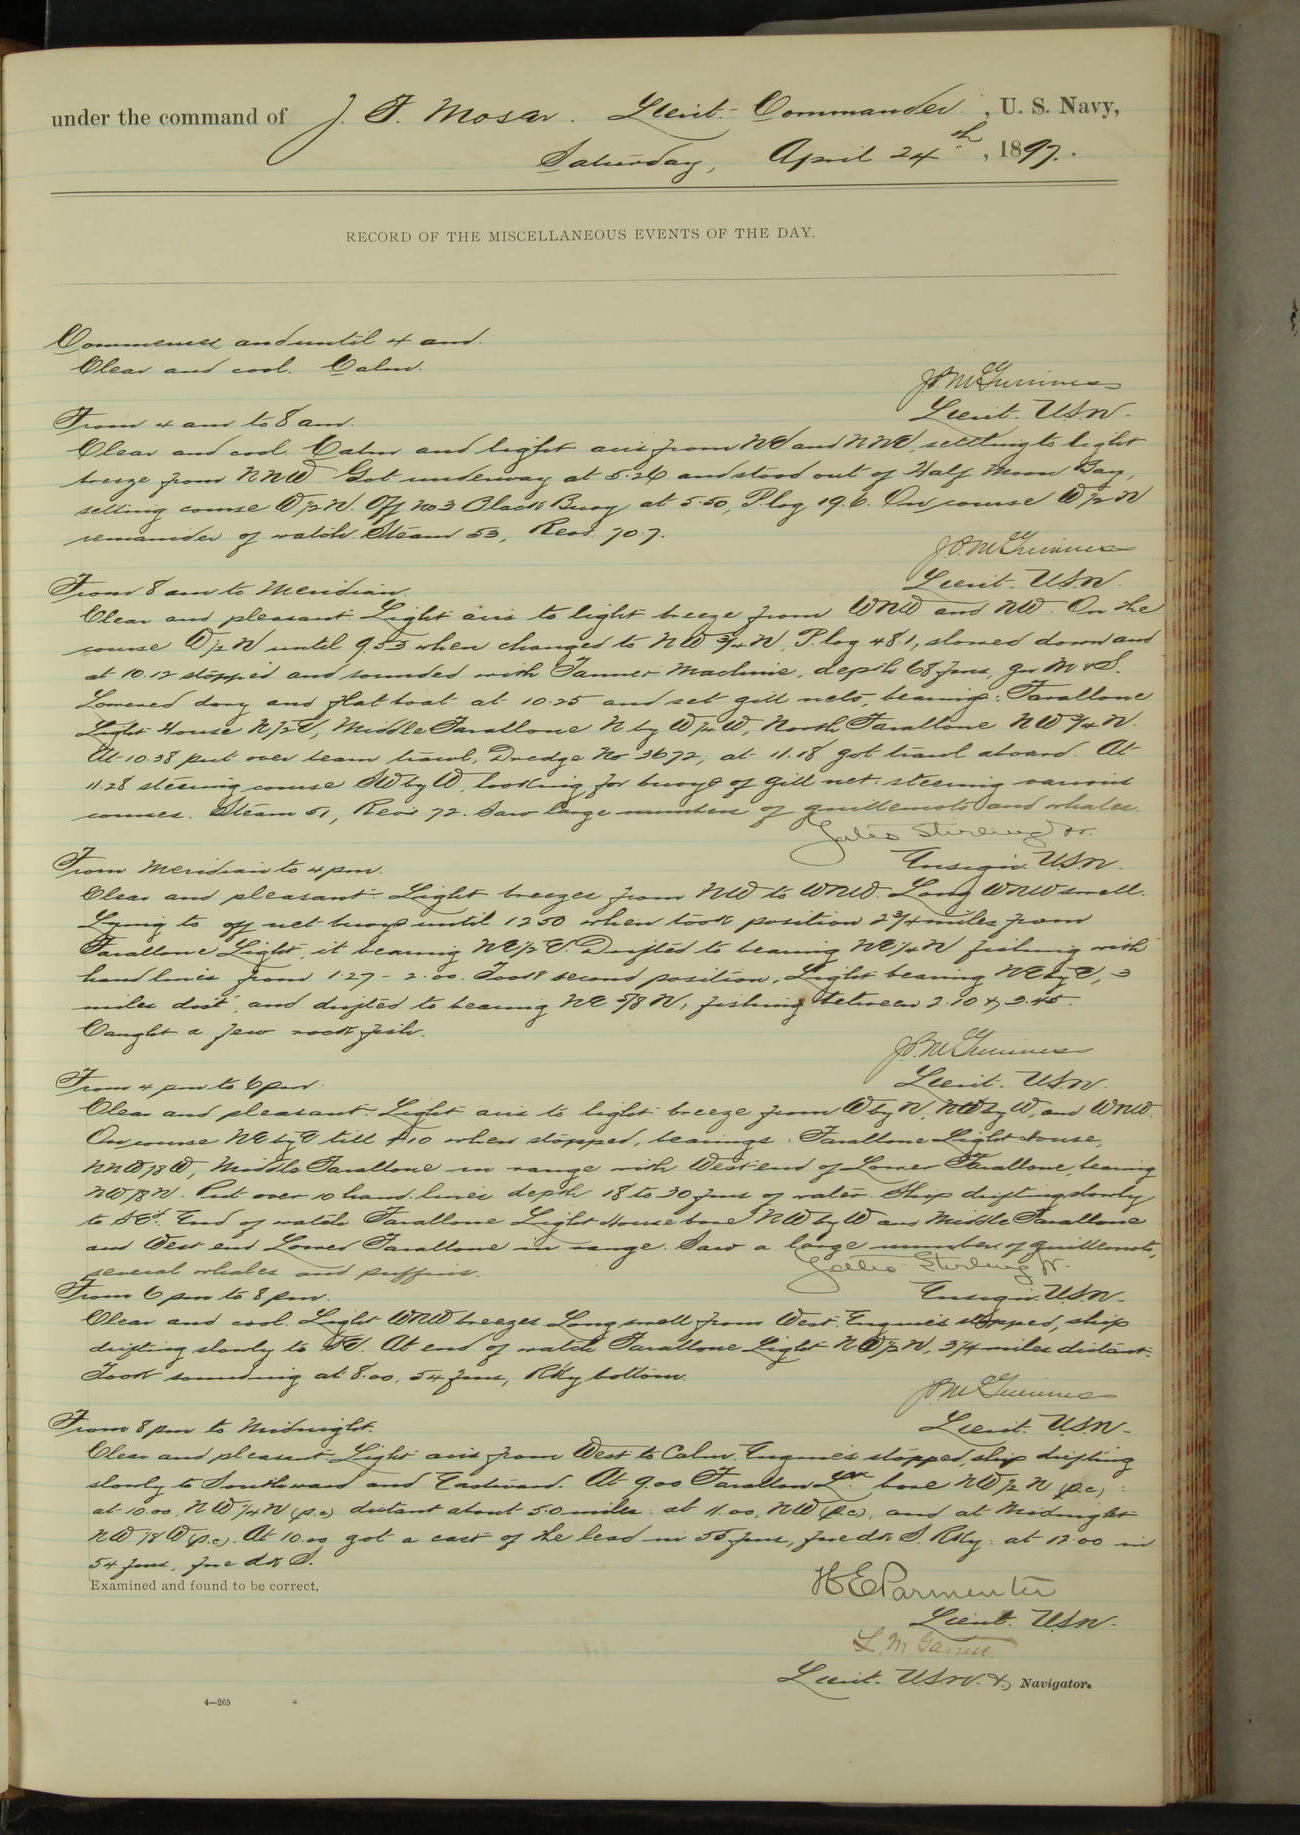 under the command of J. F. Moser. Lieut.- Commander. , U. S. Navy,
Saturday, April 24th , 1897.
RECORD OF THE MISCELLANEOUS EVENTS OF THE DAY.
Commences and until 4 am.
Clear and cool. Calm.
Lieut. U.S.N.
From 4 am to 8 am.
Clear and cool. Calm and light airs from NE and NNE, settling to light
breeze from NNW. Got underway at 5.26 and stood out of Half Moon Bay,
setting course W 1/2 N. Off No 3 Black Buoy at 5.50, P. log 19.6. On course W 1/2 N
remainder of watch. Steam 53, Revs. 70.7.
Lieut. U.S.N.
From 8 am to Meridian.
Clear and pleasant. Light airs to light breeze from WNW and NW. On the
course W 1/2 N until 9.53 when changed to NW 3/4 N, P. log 48.1, slowed down and
at 10.12 stopped and sounded with Tanner Machine, depth 68 fms, gn M & S.
Lowered dory and flat boat at 10.25 and set gill nets, bearings: Farallone
Light House N 1/2 E, Middle Farallone N by W 1/4 W, North Farallone NW 3/4 N.
At 10.38 put over beam trawl, Dredge No 3672, at 11.18 got trawl aboard. At
11.28 steering course SW by W, looking for buoys of gill net: steering various
courses. Steam 51, Revs 72. Saw large numbers of guillemots and whales.
Yates Stirling Jr.
Ensign U.S.N.
From Meridian to 4 pm.
Clear and pleasant. Light breezes from NW to WNW. Long WNW swell.
Lying to off net buoys until 12.50 when took position 2 3/4 miles from
Farallone Light, it bearing NE 1/2 E. Drifted to bearing NE 1/4 N fishing with
hand lines from 1.27 - 2.00. Took second position, Light bearing NE by E, 3
miles dist, and drifted to bearing NE 5/8 N, fishing between 2.10 & 3.45.
Caught a few rock fish.
Lieut. U.S.N.
From 4 pm to 6 pm.
Clear and pleasant. Light airs to light breeze from W by N, NW by W, and WNW.
On course NE by E till 4.10 when stopped, bearings: Farallone Light House,
NNW 7/8 W, Middle Farallone in range with West end of Lower Farallone, bearing
NW 7/8 N. Put over 10 hand lines depth 18 to 30 fms of water. Ship drifting slowly
to Sd. End of watch Farallone Light House bore NW by W and Middle Farallone
and West end Lower Farallone in range. Saw a large number of guillemots,
several whales and puffins.
Yates Stirling Jr.
Ensign U.S.N.
From 6 pm to 8 pm.
Clear and cool. Light WNW breezes. Long swell from West. Engines stopped, ship
drifting slowly to Sd. At end of watch Farallone Light NW 1/2 N, 3 1/4 miles distant.
Took sounding at 8.00, 54 fms, Rky bottom.
Lieut. U.S.N.
From 8 pm to Midnight.
Clear and pleasant. Light airs from West to Calm. Engines stopped, ship drifting
slowly to Southward and Eastward. At 9.00 Farallon Lt. bore NW 1/2 N (p.c):
at 10.00, NW 1/4 N (p.c) distant about 5.0 miles: at 11.00, NW (p.c), and at Midnight
NW 1/8 W (p.c). At 10.00 got a cast of the lead in 55 fms, fne dk S. Rky: at 12.00 in
54 fms, fne dk S.
Examined and found to be correct.
H E Parmenter
Lieut. U.S.N.
L. M. Garrett.
Lieut. U.S.N. & Navigator.
4—265